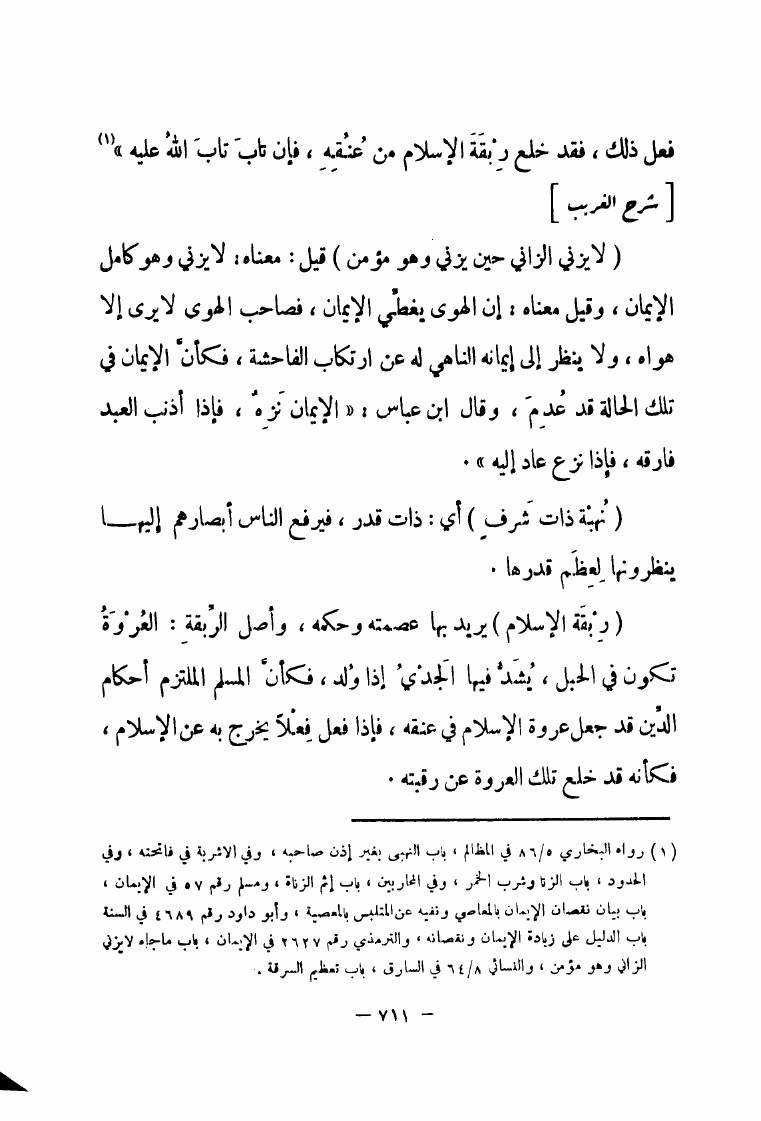 فعل ذلك ، فقد خلع رِبْقَةَ الإسلام من عُنُقِهِ ، فإن تابَ تابَ اللهُ عليه »(١)
[ شرح الغريب ]
( لا يزني الزاني حين يزني وهو مؤمن ) قيل : معناه : لا يزني وهو كامل
الإيمان ، وقيل معناه : إن الهوى يغطّي الإيمان ، فصاحب الهوى لا يرى إلا
هواه ، ولا ينظر إلى إيمانه الناهي له عن ارتكاب الفاحشة ، فكأنَّ الإيمان في
تلك الحالة قد عُدِمَ ، وقال ابن عباس : « الإيمان نَزِهٌ ، فإذا أذنب العبد
فارقه ، فإذا نزع عاد إليه » .
( نُهبْة ذات شَرفٍ ) أي : ذات قدر ، فيرفع الناس أبصارهم إليهـــا
ينظرونها لِعِظَم قدرها .
( رِبْقَة الإسلام ) يريد بها عصمته وحكمه ، وأصل الرِّبقةِ : العُرْوَةُ
تكون في الحبل ، يُشَدُّ فيها الَجدْيُ إذا وُلد ، فكأنَّ المسلم الملتزم أحكام
الدِّين قد جعل عروة الإسلام في عنقه ، فإذا فعل فِعْلاً يخرج به عن الإسلام ،
فكأنه قد خلع تلك العروة عن رقبته .
(١) رواه البخاري ٨٦/٥ في المظالم ، باب النهبى بغير إذن صاحبه ، وفي الاشربة في فاتحته ، وفي
الحدود ، باب الزنا وشرب الخمر ، وفي المحاربين ، باب إثم الزناة ، ومسلم رقم ٥٧ في الإيمان ،
باب بيان نقصان الإيمان بالمعاصي ونفيه عن المتلبس بالمعصية ، وأبو داود رقم ٤٦٨٩ في السنة
باب الدليل على زيادة الإيمان ونقصانه ، والترمذي رقم ٢٦٢٧ في الإيمان ، باب ماجاء لايزني
الزاني وهو مؤمن ، والنسائي ٦٤/٨ في السارق ، باب تعظيم السرقة .
— ٧١١ —